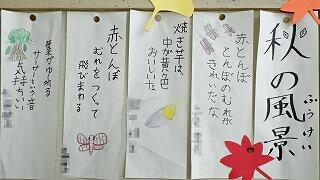 秋の風景
ふうけい
赤とんぼ
とんぼのむれが
きれいだな
焼き芋は
中が黄色
おいしいな
赤とんぼ
むれをつくって
飛びまわる
葉がゆれる
サーサーという音
気持ちいい